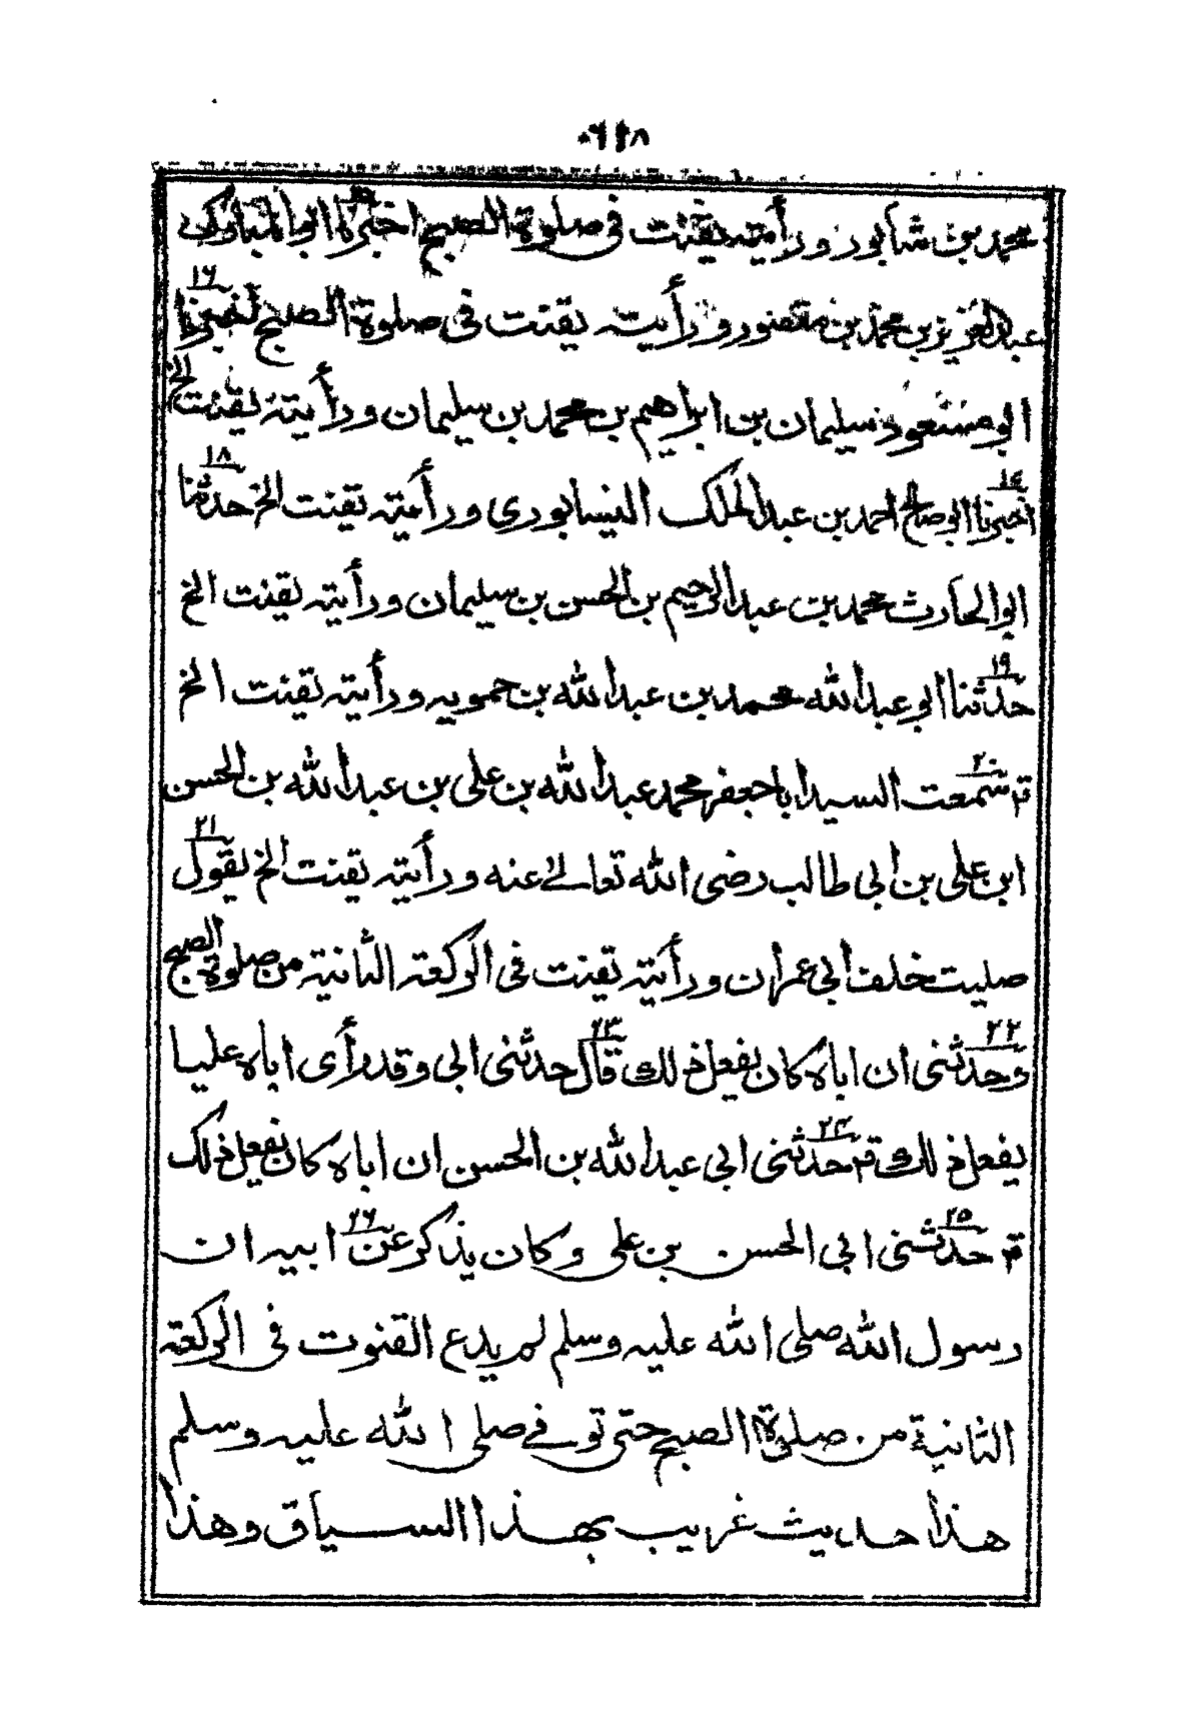 محمد بن شابور ورأيته يقنت فى صلوة الصبح اخبرنا ابو المبارك
١٦
عبد العزيز بن محمد بن منصور ورأيته يقنت فى صلوة الصبح اخبرنا
ابو مسعود سليمان بن ابراهيم بن محمد بن سليمان ورأيته يقنت الخ
١٤ ١٨
اخبرنا ابو صالح احمد بن عبد الملك النيسابورى ورأيته يقنت الخ حدثنا
ابو الحارث محمد بن عبد الرحيم بن الحسن بن سليمان ورأيته يقنت الخ
١٩
حدثنا ابو عبد الله محمد بن عبد الله بن حمويه ورأيته يقنت الخ
٢٠
قم سمعت السيد ابا جعفر محمد عبد الله بن على بن عبد الله بن الحسن
٢١
ابن على بن ابى طالب رضى الله تعالى عنه ورأيته يقنت الخ يقول
صليت خلف ابى عمران ورأيته يقنت فى الركعة الثانية من صلوة الصبح
٢٢ ٢٣
وحدثنى ان اباه كان يفعل ذلك قال حدثنى ابى وقد رأى اباه عليا
٢٤
يفعل ذلك قم حدثنى ابى عبد الله بن الحسن ان اباه كان يفعل ذلك
٢٥ ٢٦
قم حدثنى ابى الحسن بن على وكان يذكر عن ابيه ان
رسول الله صلى الله عليه وسلم لم يدع القنوت فى الركعة
الثانية من صلوة الصبح حتى توفى صلى الله عليه وسلم
هذا حديث غريب بهذا السياق وهذا